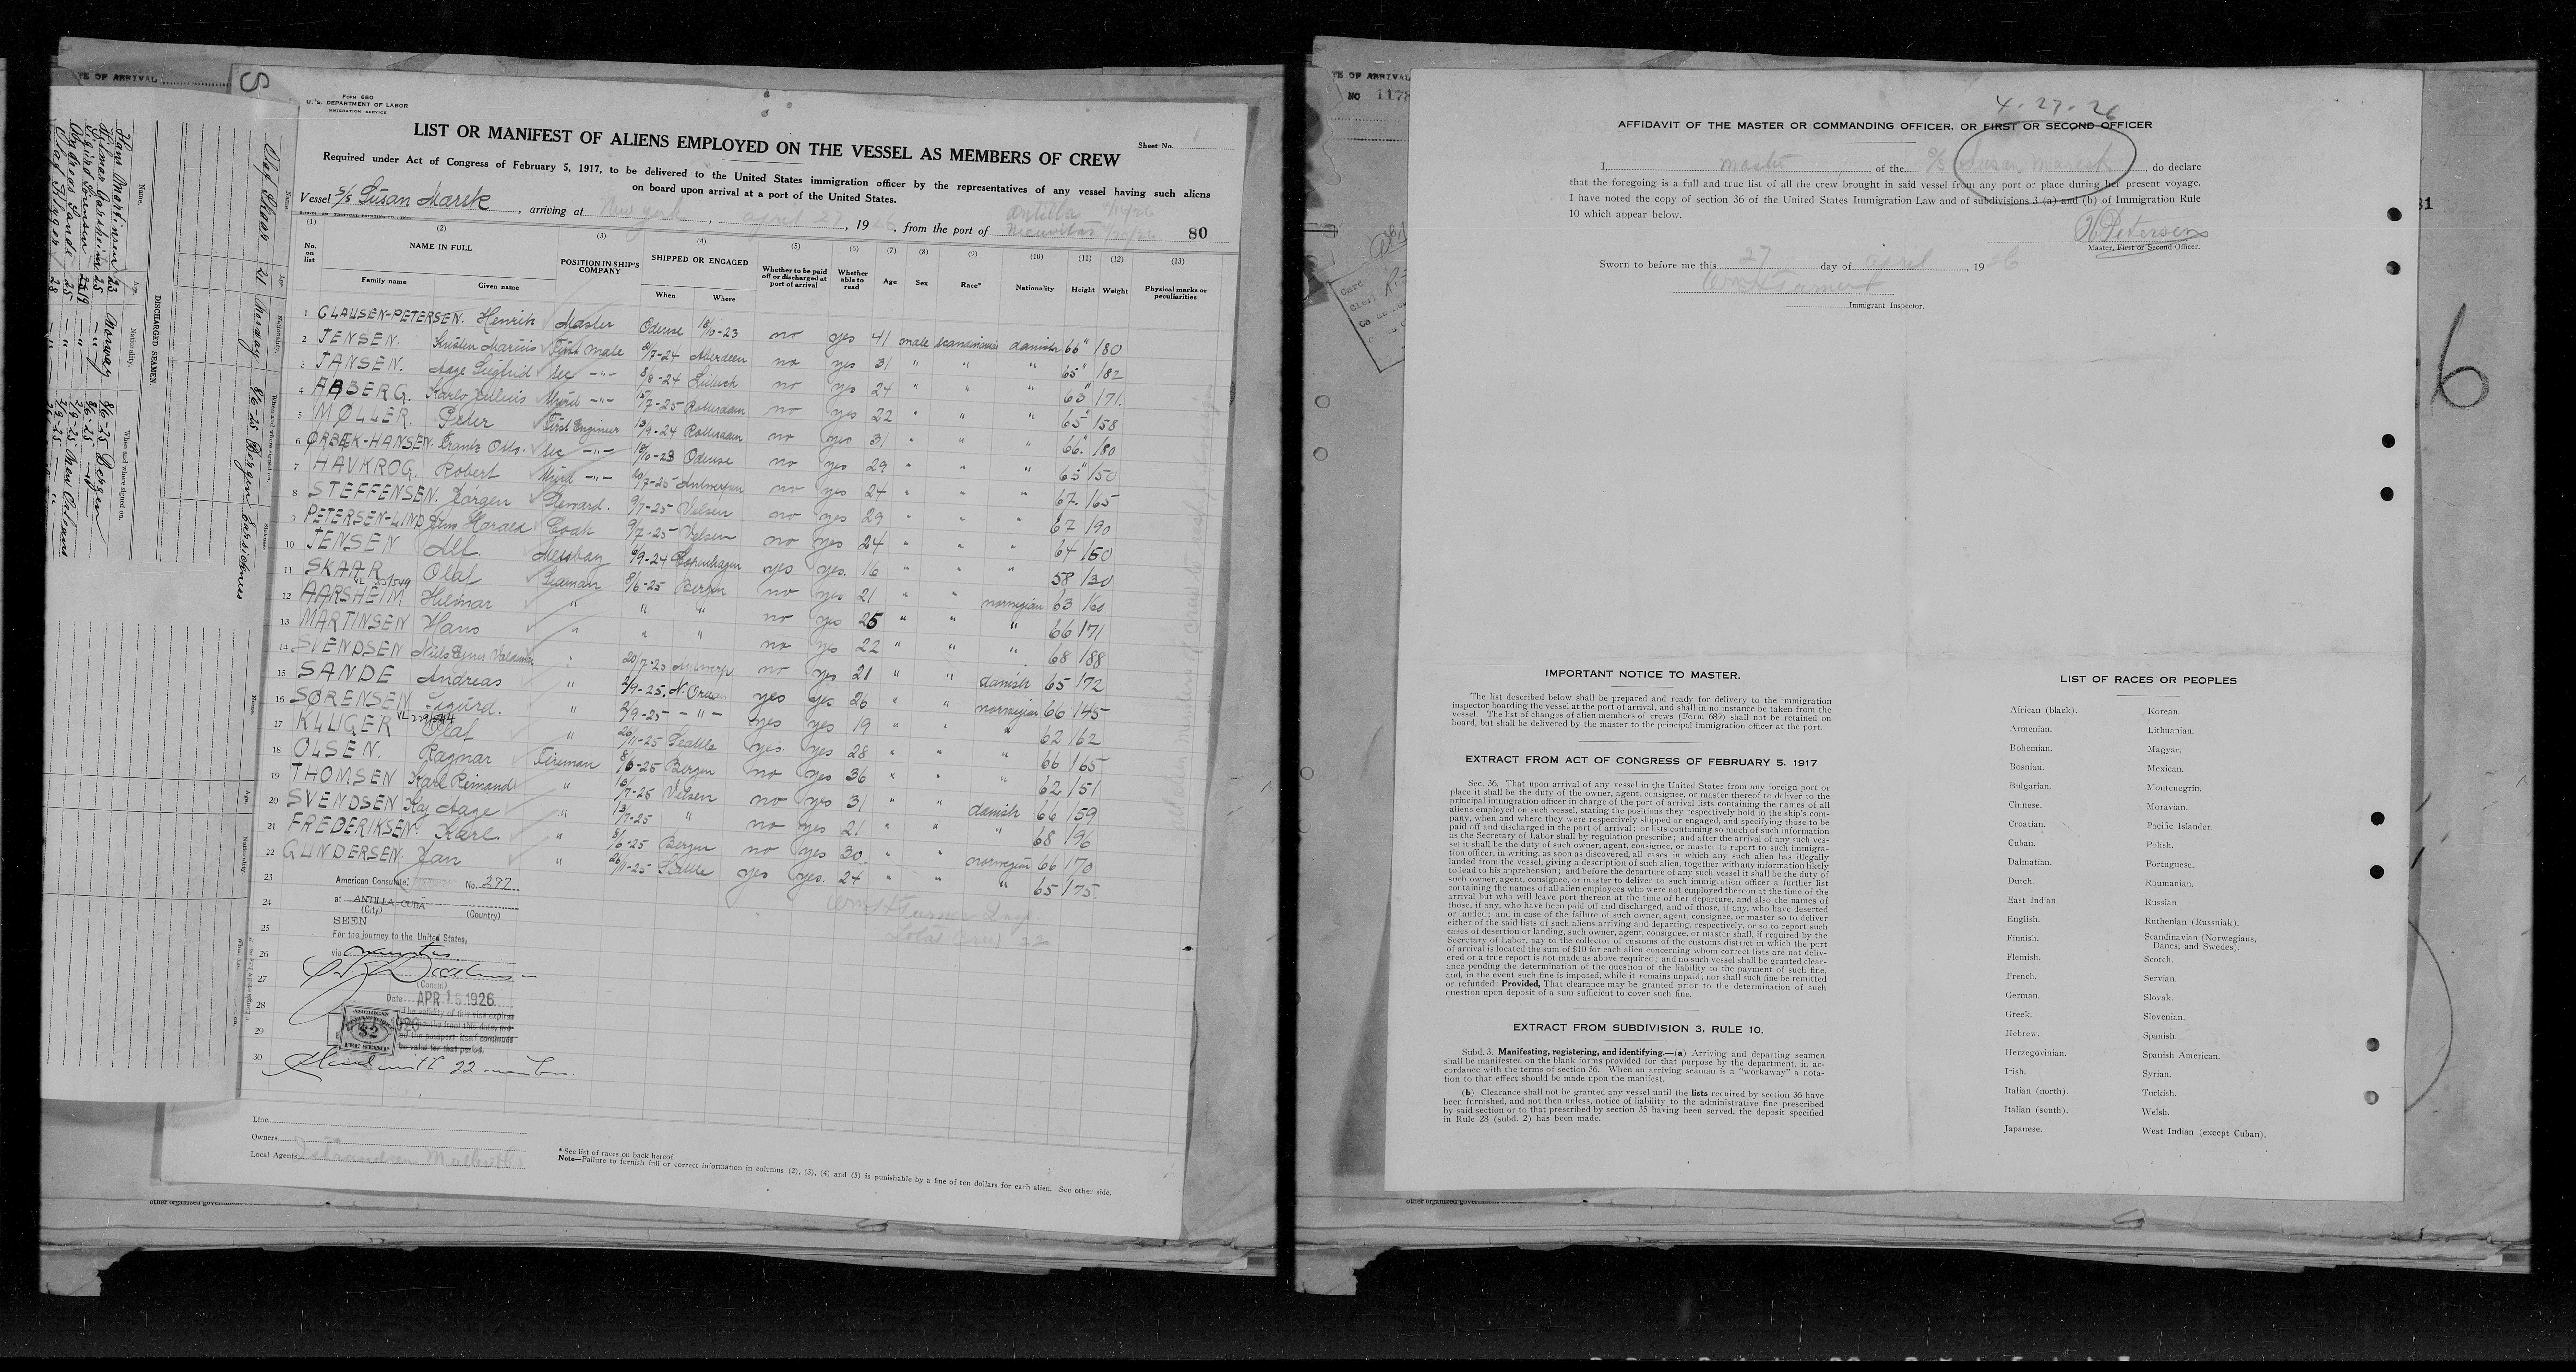 TE OF ARRIVAL
S
Form 680
U. S. DEPARTMENT OF LABOR
IMMIGRATION SERVICE
LIST OR MANIFEST OF ALIENS EMPLOYED ON THE VESSEL AS MEMBERS OF CREW
Sheet No. 1
Required under Act of Congress of February 5, 1917, to be delivered to the United States immigration officer by the representatives of any vessel having such aliens
on board upon arrival at a port of the United States.
Vessel S/S Susan Mærsk, arriving at New York, april 27, 1926, from the port of Antilla Nuevitas 4/20/26 80
(1) (2) (3) (4) (5) (6) (7) (8) (9) (10) (11) (12) (13)
No. on list NAME IN FULL POSITION IN SHIP'S COMPANY SHIPPED OR ENGAGED Whether to be paid off or discharged at port of arrival Whether able to read Age Sex Race* Nationality Height Weight Physical marks or peculiarities
Family name Given name When Where
1 CLAUSEN-PETERSEN. Henrik Master Odense 18/10-23 no yes 41 male scandinavia danish 66" 180
2 JENSEN. Kristen Marius First Mate 2/7-24 Aberdeen no yes 31 " " " 65" 182
3 JANSEN. Aage Sigfrid Sec -"- 8/8-24 Lübeck no yes 24 " " " 63" 171.
4 AABERG. Karlo Julius Third -"- 15/7-25 Rotterdam no yes 22 " " " 65" 158
5 MØLLER. Peter First Engineer 13/9-24 Rotterdam no yes 31 " " " 66" 180
6 ØRBÆK-HANSEN. Frants Otto. Sec -"- 18/10-23 Odense no yes 29 " " " 65" 150
7 HAVKROG. Robert Third -"- 20/7-25 Antwerpen no yes 24 " " " 67. 165
8 STEFFENSEN. Jörgen Steward. 9/7-25 Velsen no yes 29 " " " 67 190
9 PETERSEN-LIND Jens Harald Cook 9/7-25 Velsen no yes 24 " " " 64 150
10 JENSEN Alf. Messboy 6/9-24 Copenhagen yes yes. 16 " " " 58 130
11 SKAAR Olaf Seaman 8/6-25 Bergen no yes 21 " " norwegian 63 160
12 AARSHEIM Hilmar " " " no yes 25 " " " 66 171
13 MARTINSEN Hans " " " no yes 22 " " " 68 188
14 SVENDSEN Niels Ejner Valdemar " 20/7-25 Antwerp no yes 21 " " danish 65 172
15 SANDE Andreas " 2/9-25. N. Orleans yes yes 26 " " norwegian 66 145
16 SØRENSEN Sigurd. " 2/9-25 -"- yes yes 19 " " " 62 162
17 KLUGER Olaf " 26/11-25 Seattle yes. yes 28 " " " 66 165
18 OLSEN. Ragnar Fireman 8/6-25 Bergen no yes 36 " " " 62 151
19 THOMSEN Karl Reimand " 13/7-25 Velsen no yes 31 " " danish 66 159
20 SVENDSEN Kaj Aage " 13/7-25 " no yes 21 " " " 68 196
21 FREDERIKSEN. Karl. " 8/6-25 Bergen no yes 30 " " norwegian 66 170
22 GUNDERSEN. Jan " 26/11-25 Seattle yes yes. 24 " " " 65 175.
23
24
25
26
27
28
29
30
American Consulate. No. 297
at ANTILLA, CUBA
(City) (Country)
SEEN
For the journey to the United States,
via
(Consul)
Date APR 16 1926
The validity of this visa expires
AMERICAN
$2
FEE STAMP
with 22 members.
Wm H Turner Insp.
Total Crew 22
Line
Owners
Local Agents
* See list of races on back hereof.
Note—Failure to furnish full or correct information in columns (2), (3), (4) and (5) is punishable by a fine of ten dollars for each alien. See other side.
DISCHARGED SEAMEN.
Name. Age. Nationality. When and where signed on.
Olaf Skaar 21 Norway 8/6-25 Bergen
Hans Martinsen 23 Norway 8/6-25 Bergen
Hilmar Aarsheim 25 -"- 8/6-25 -"-
Sigurd Sörensen 19 -"- 2/9-25
Andreas Sande 25 -"- 2/9-25 New Orleans
other organized government
TE OF ARRIVAL
NO 1178
4-27-26
AFFIDAVIT OF THE MASTER OR COMMANDING OFFICER, OR FIRST OR SECOND OFFICER
I, master, of the S/S Susan Maersk, do declare
that the foregoing is a full and true list of all the crew brought in said vessel from any port or place during her present voyage.
I have noted the copy of section 36 of the United States Immigration Law and of subdivisions 3 (a) and (b) of Immigration Rule
10 which appear below.
H Petersen
Master, First or Second Officer.
Sworn to before me this 27 day of april, 1926
Wm H Turner
Immigrant Inspector.
6
81
IMPORTANT NOTICE TO MASTER.
The list described below shall be prepared and ready for delivery to the immigration
inspector boarding the vessel at the port of arrival, and shall in no instance be taken from the
vessel. The list of changes of alien members of crews (Form 689) shall not be retained on
board, but shall be delivered by the master to the principal immigration officer at the port.
EXTRACT FROM ACT OF CONGRESS OF FEBRUARY 5, 1917
Sec. 36. That upon arrival of any vessel in the United States from any foreign port or
place it shall be the duty of the owner, agent, consignee, or master thereof to deliver to the
principal immigration officer in charge of the port of arrival lists containing the names of all
aliens employed on such vessel, stating the positions they respectively hold in the ship's com-
pany, when and where they were respectively shipped or engaged, and specifying those to be
paid off and discharged in the port of arrival; or lists containing so much of such information
as the Secretary of Labor shall by regulation prescribe; and after the arrival of any such ves-
sel it shall be the duty of such owner, agent, consignee, or master to report to such immigra-
tion officer, in writing, as soon as discovered, all cases in which any such alien has illegally
landed from the vessel, giving a description of such alien, together with any information likely
to lead to his apprehension; and before the departure of any such vessel it shall be the duty of
such owner, agent, consignee, or master to deliver to such immigration officer a further list
containing the names of all alien employees who were not employed thereon at the time of the
arrival but who will leave port thereon at the time of her departure, and also the names of
those, if any, who have been paid off and discharged, and of those, if any, who have deserted
or landed; and in case of the failure of such owner, agent, consignee, or master so to deliver
either of the said lists of such aliens arriving and departing, respectively, or so to report such
cases of desertion or landing, such owner, agent, consignee, or master shall, if required by the
Secretary of Labor, pay to the collector of customs of the customs district in which the port
of arrival is located the sum of $10 for each alien concerning whom correct lists are not deliv-
ered or a true report is not made as above required; and no such vessel shall be granted clear-
ance pending the determination of the question of the liability to the payment of such fine,
and, in the event such fine is imposed, while it remains unpaid; nor shall such fine be remitted
or refunded: Provided, That clearance may be granted prior to the determination of such
question upon deposit of a sum sufficient to cover such fine.
EXTRACT FROM SUBDIVISION 3, RULE 10.
Subd. 3. Manifesting, registering, and identifying.—(a) Arriving and departing seamen
shall be manifested on the blank forms provided for that purpose by the department, in ac-
cordance with the terms of section 36. When an arriving seaman is a "workaway" a nota-
tion to that effect should be made upon the manifest.
(b) Clearance shall not be granted any vessel until the lists required by section 36 have
been furnished, and not then unless, notice of liability to the administrative fine prescribed
by said section or to that prescribed by section 35 having been served, the deposit specified
in Rule 28 (subd. 2) has been made.
LIST OF RACES OR PEOPLES
African (black). Korean.
Armenian. Lithuanian.
Bohemian. Magyar.
Bosnian. Mexican.
Bulgarian. Montenegrin.
Chinese. Moravian.
Croatian. Pacific Islander.
Cuban. Polish.
Dalmatian. Portuguese.
Dutch. Roumanian.
East Indian. Russian.
English. Ruthenian (Russniak).
Finnish. Scandinavian (Norwegians,
Danes, and Swedes).
Flemish. Scotch.
French. Servian.
German. Slovak.
Greek. Slovenian.
Hebrew. Spanish.
Herzegovinian. Spanish American.
Irish. Syrian.
Italian (north). Turkish.
Italian (south). Welsh.
Japanese. West Indian (except Cuban).
other organized government